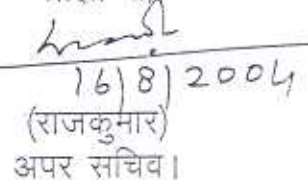 16/8/2004
(राजकुमार)
अपर सचिव।